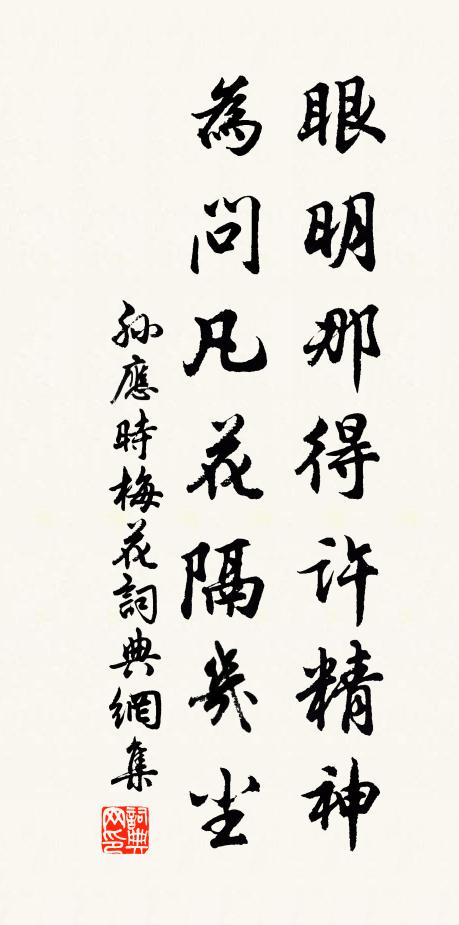 眼明那得许精神
為问凡花隔幾尘
孙應時梅花詞典網集
詞典网印